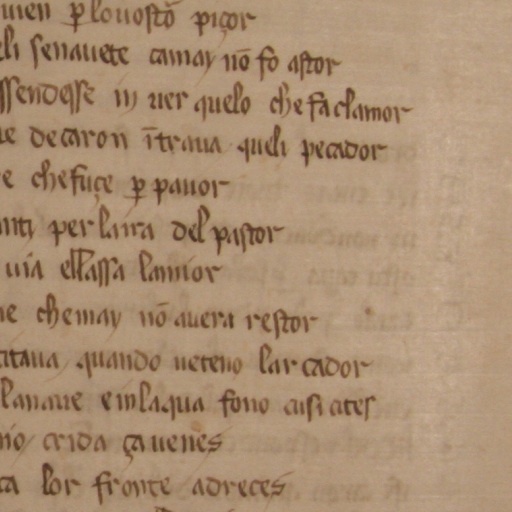 uien p louostō piçor
li senauete camay nō fo astor
ssendesse in uer quelo che fa clamor
e decaron ītraua queli pecador
e che fuçe p pauor
nti per laira del pastor
uia ellassa lamor
e chemay nō auera restor
itaua quando ueteno lar cador
lanaue en laqua fono cusi
crida ça uenes
ta lor fronte adreces